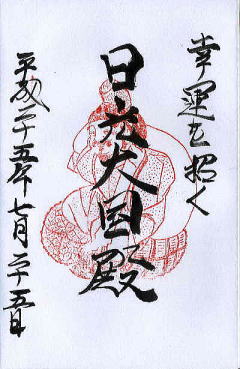 幸運を招く
日光大国殿
平成二十五年七月二十五日